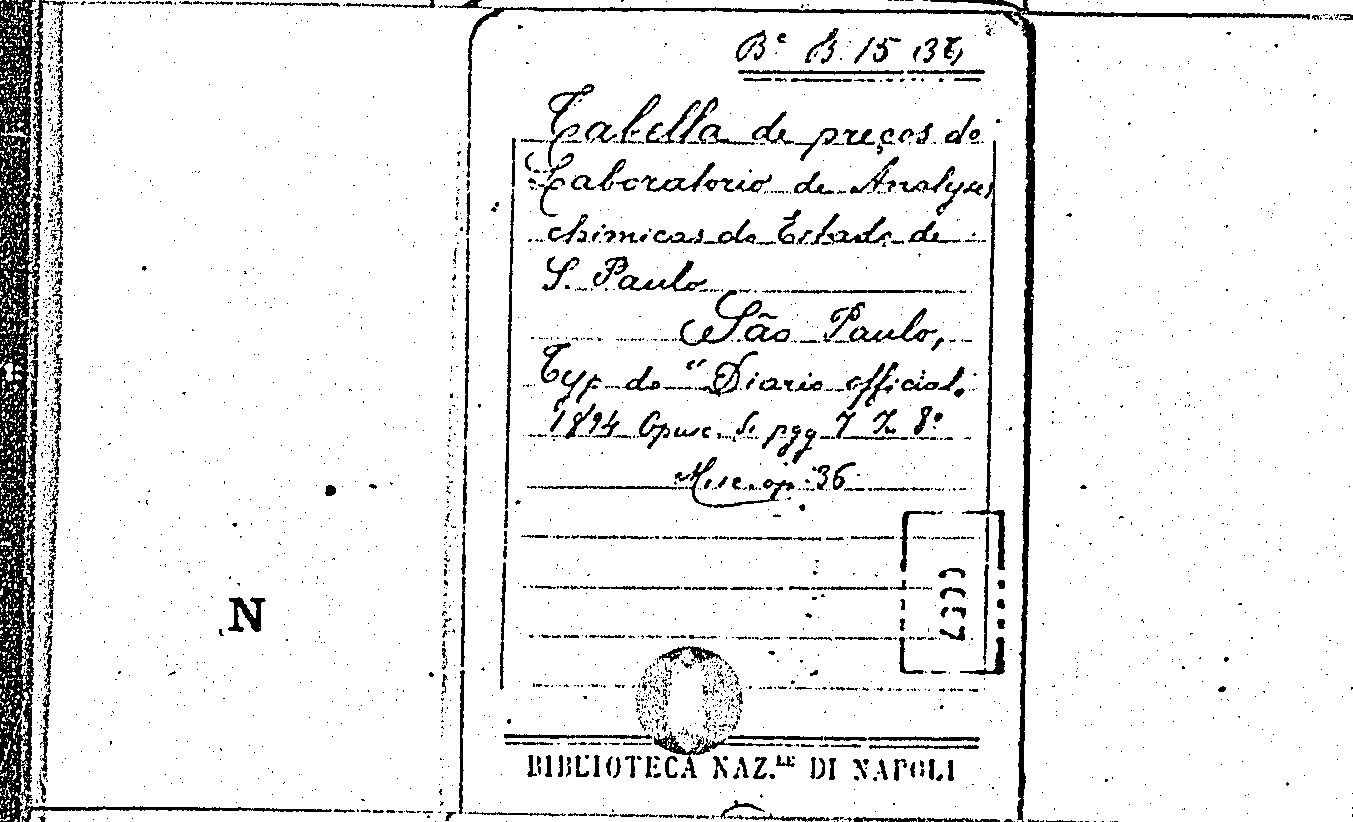 Bᵉ B. 15 (36,
Tabella de preços do
Laboratorio de Analyses
chimicas do Estado de
S. Paulo
São Paulo,
Typ do "Diario official.
1894 Opusc. di pgg 7 in 8º
Misc. op. 36
N
BIBLIOTECA NAZ.LE DI NAPOLI